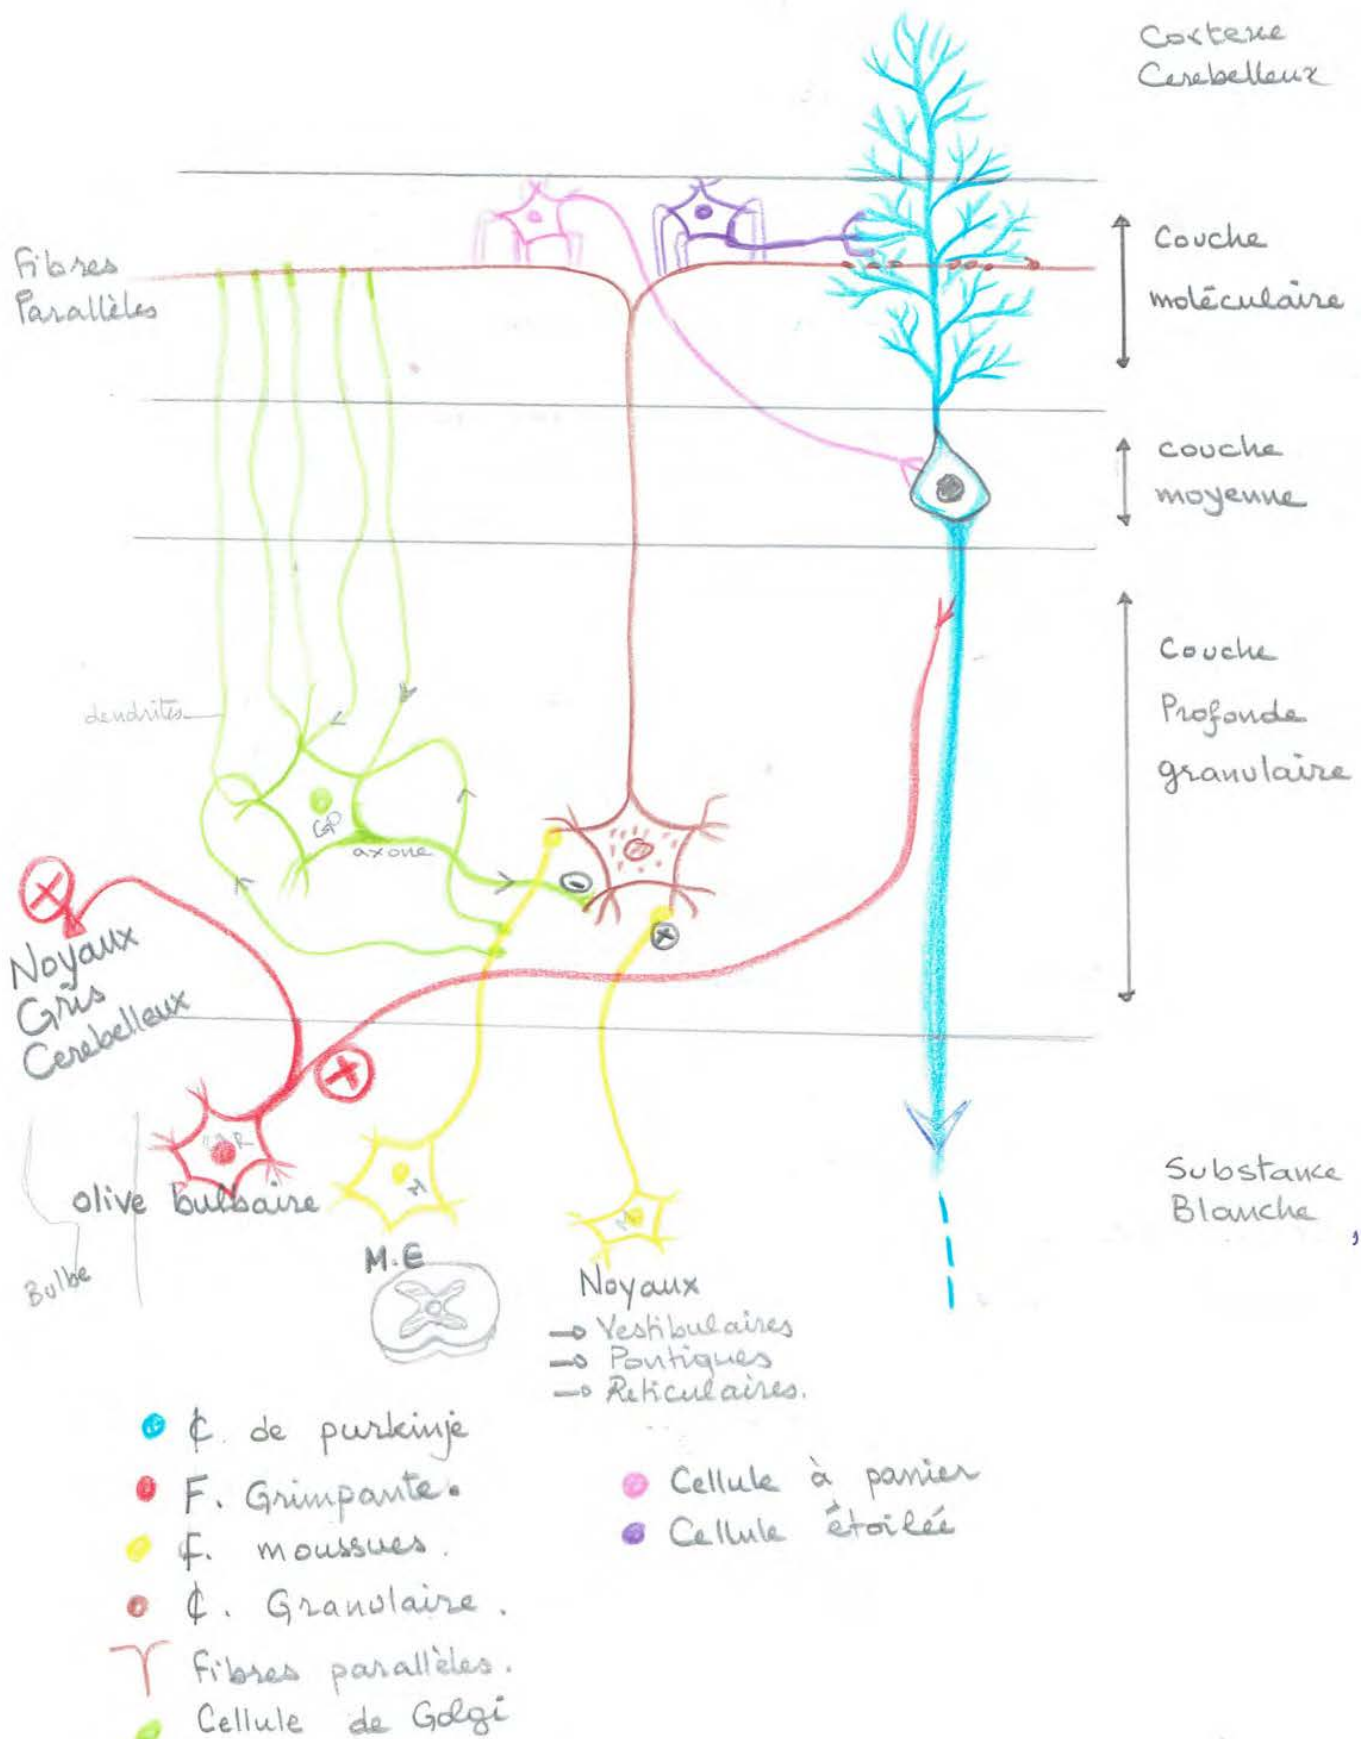 Cortexe
Cerebelleux
Fibres
Parallèles
Couche
moléculaire
couche
moyenne
dendrites
Couche
Profonde
granulaire
GP
axone
Noyaux
Gris
Cerebelleux
R
olive bulbaire
Bulbe
M
M.E
M
Noyaux
→ Vestibulaires
→ Pontiques
→ Réticulaires.
Substance
Blanche
₵. de purkinje
F. Grimpante.
F. moussues.
₵. Granulaire.
Fibres parallèles.
Cellule de Golgi
Cellule à panier
Cellule étoilée